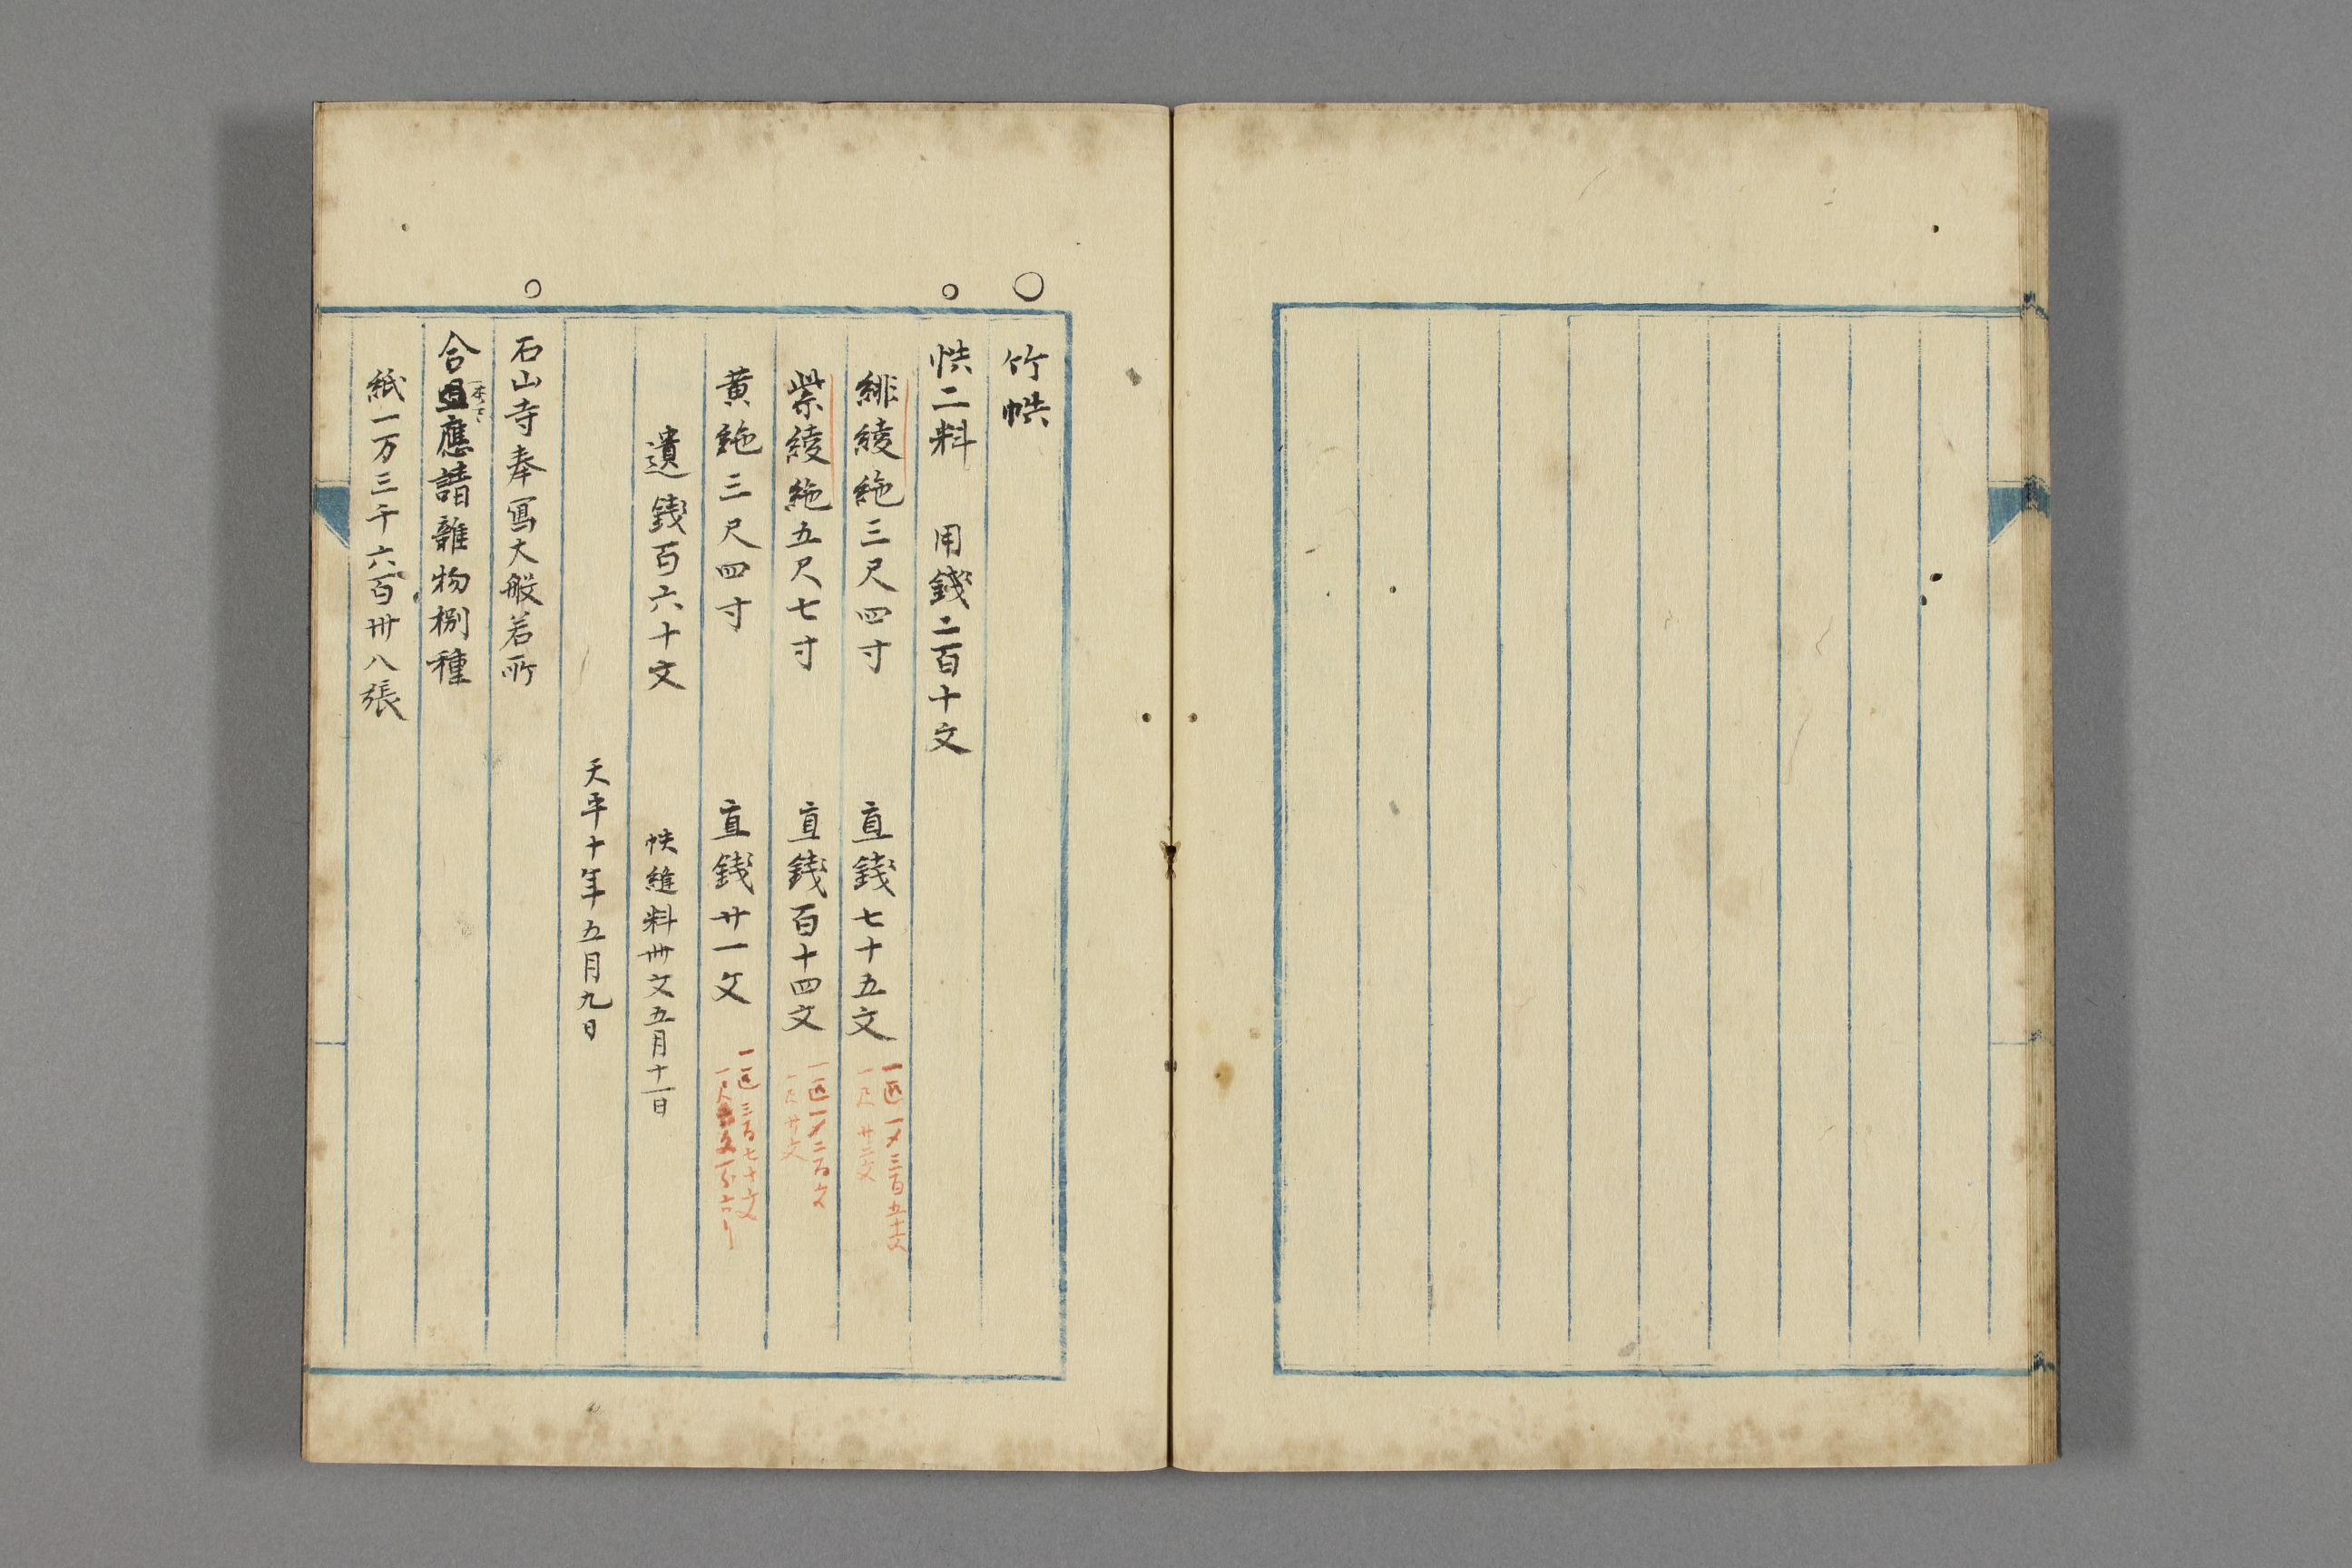 ○竹帙
○帙二料 用錢二百十文
緋綾絁三尺四寸 直錢七十五文 一匹一メ三百五十文 一尺廿二文
紫綾絁五尺七寸 直錢百十四文 一匹一メ二百文 一尺廿文
黄絁三尺四寸 直錢廿一文 一匹三百七十文
遺錢百六十文 帙縫料卌文五月十一日
天平十年五月九日
○石山寺奉冩大般若所
合且應請雜物捌種
紙一万三千六百卌八張